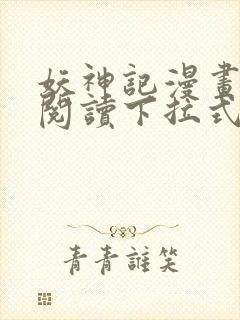 妖神記漫畫
閱讀下拉式
青青誰笑